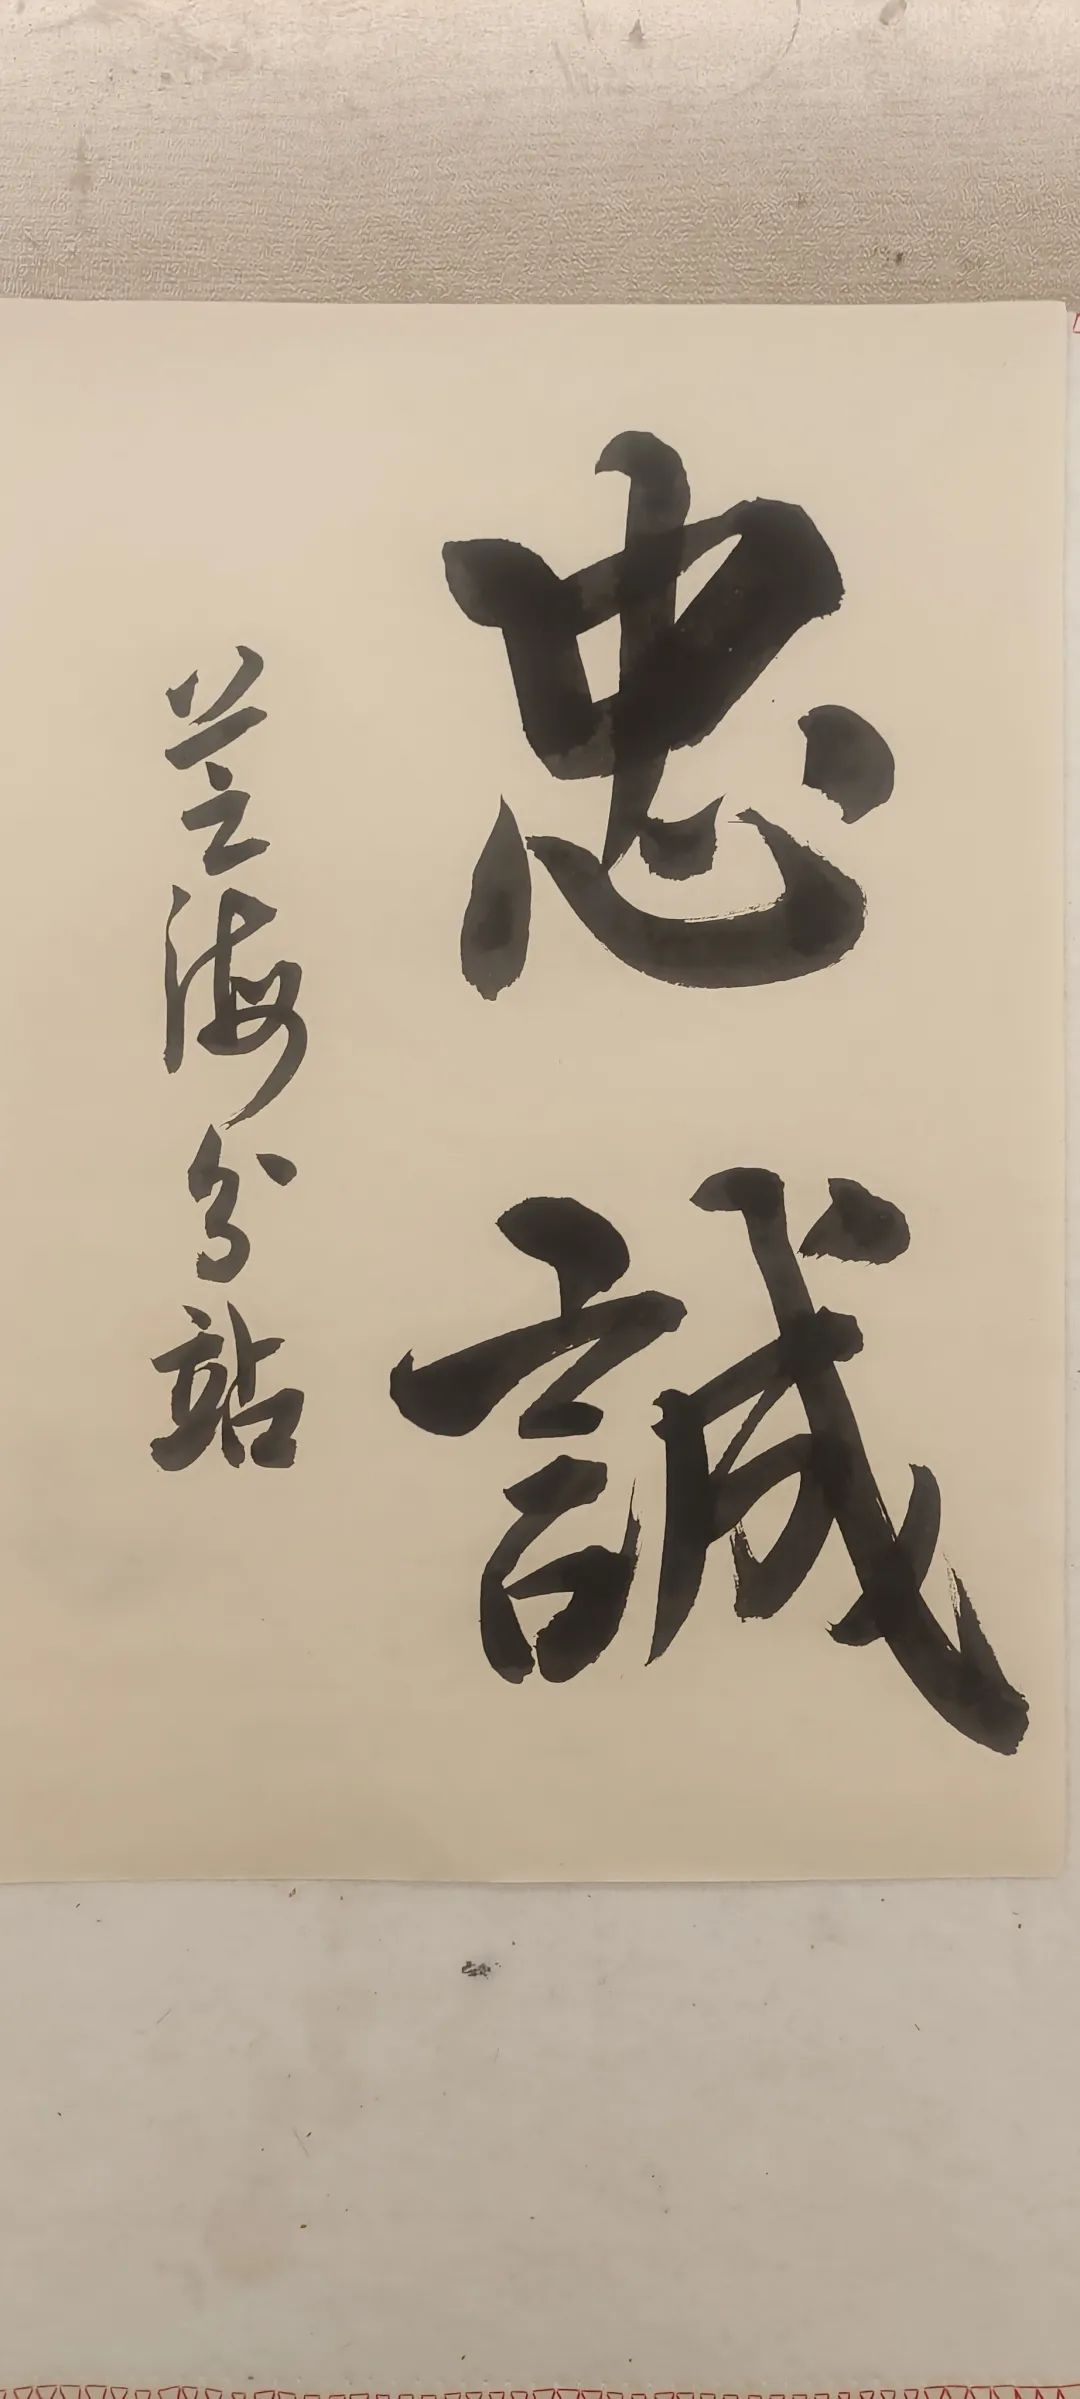 忠誠
兰之海分站